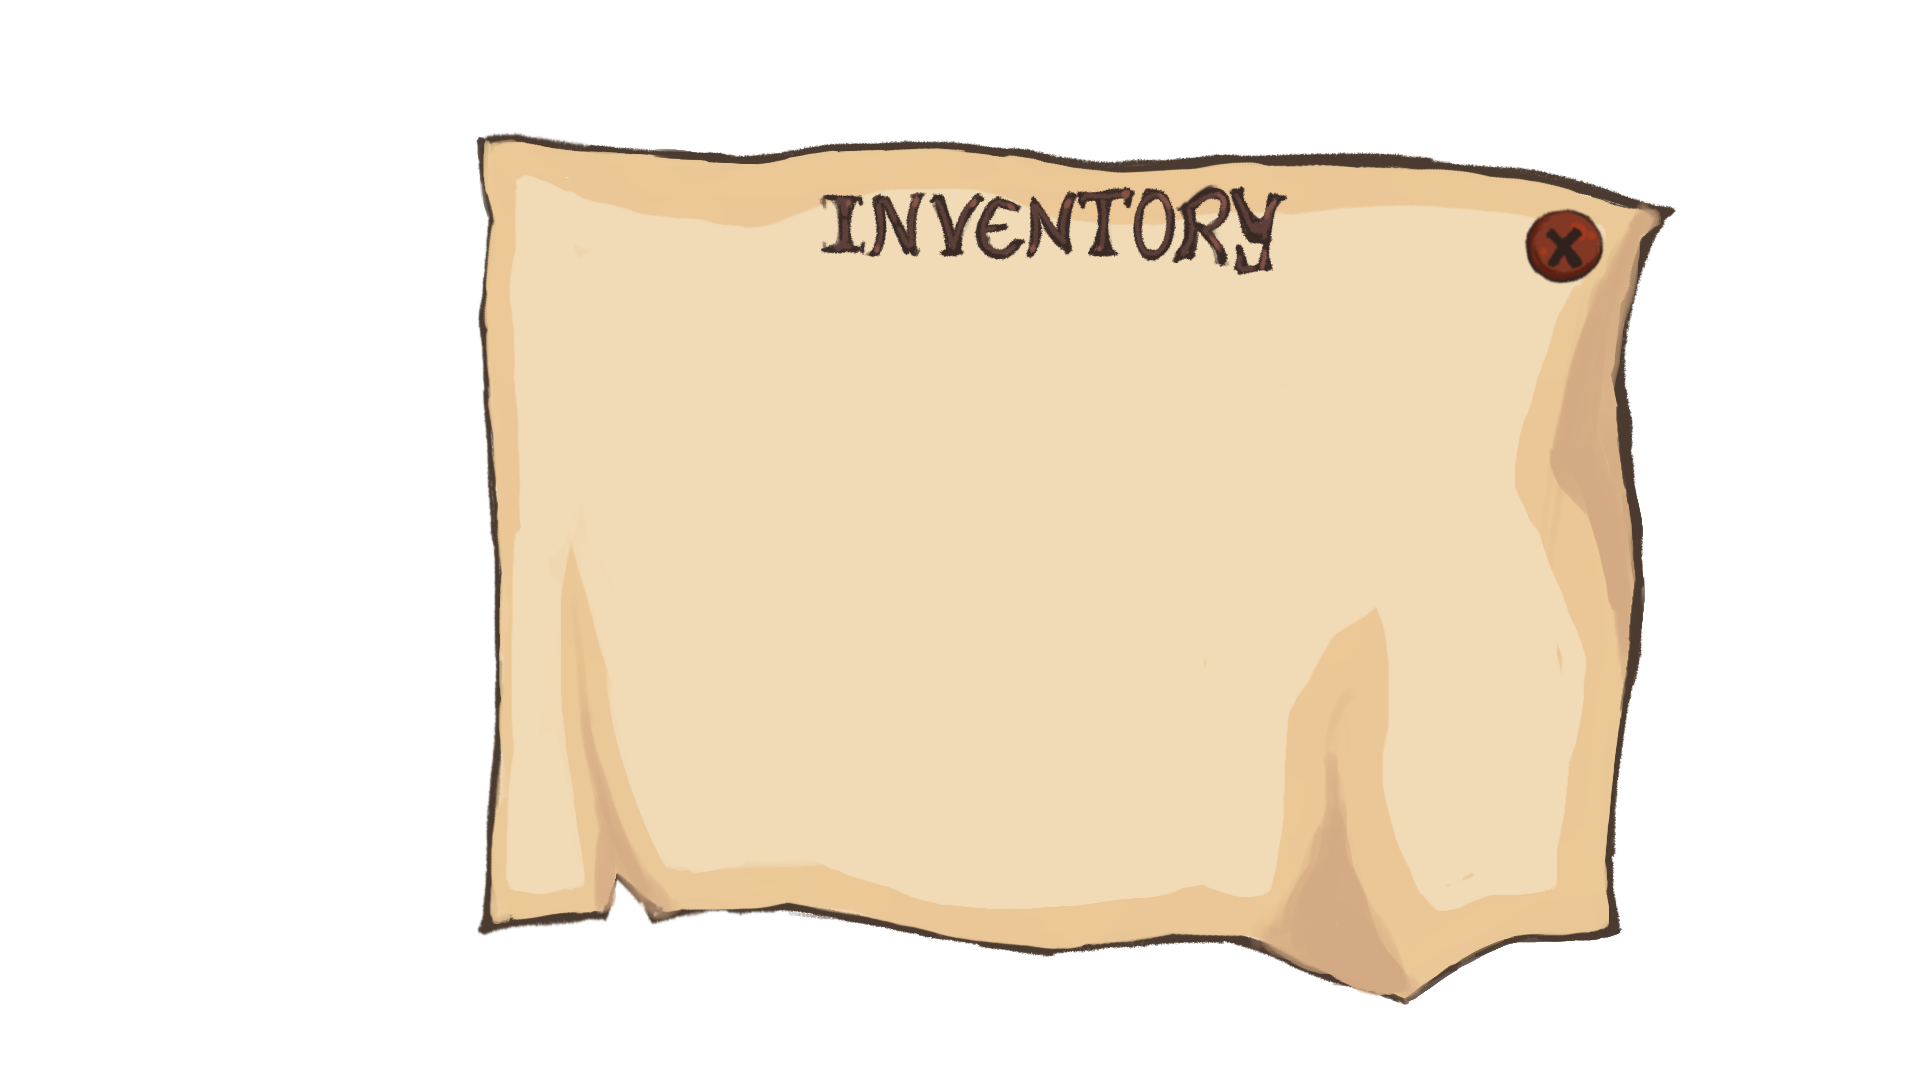 INVENTORY
X